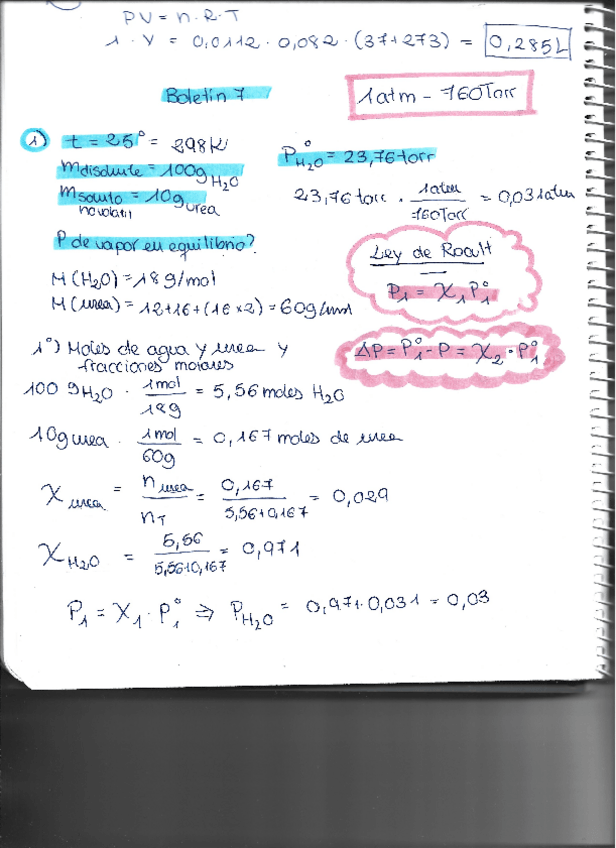 PV = n.R.T
1 · V = 0,0112 · 0,082 · (37+273) = 0,285L
Boletín 7
1atm - 760Torr
1) t = 25° = 298K
P°H₂O = 23,76 torr
mdisolvente = 100g H₂O
msoluto = 10g urea
no volatil
23,76 torr · 1atm / 760Torr = 0,031atm
P de vapor en equilibrio?
Ley de Roault
P₁ = X₁ P₁°
M(H₂O) = 18 g/mol
M(urea) = 12+16+(16×2) = 60g/mol
ΔP = P₁° - P = X₂ · P₁°
1°) Moles de agua y urea y
fracciones molares
100 g H₂O · 1mol / 18g = 5,56 moles H₂O
10g urea · 1mol / 60g = 0,167 moles de urea
X urea = n urea / nT = 0,167 / 5,56+0,167 = 0,029
X H₂O = 5,56 / 5,56+0,167 = 0,971
P₁ = X₁ · P₁° ⇒ P H₂O = 0,971·0,031 = 0,03